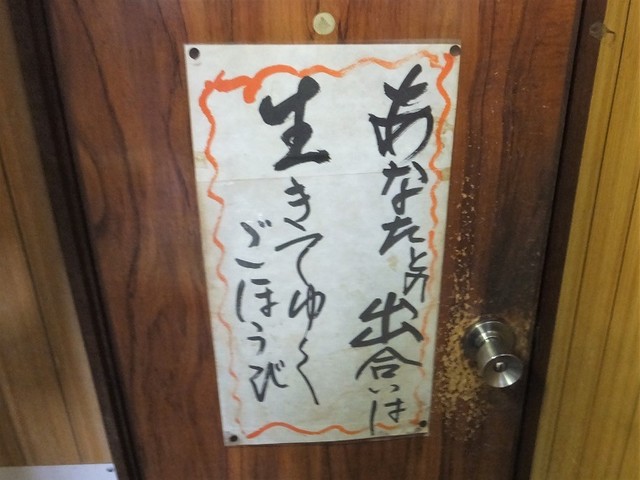 あなたとの出合いは
生きてゆく
ごほうび